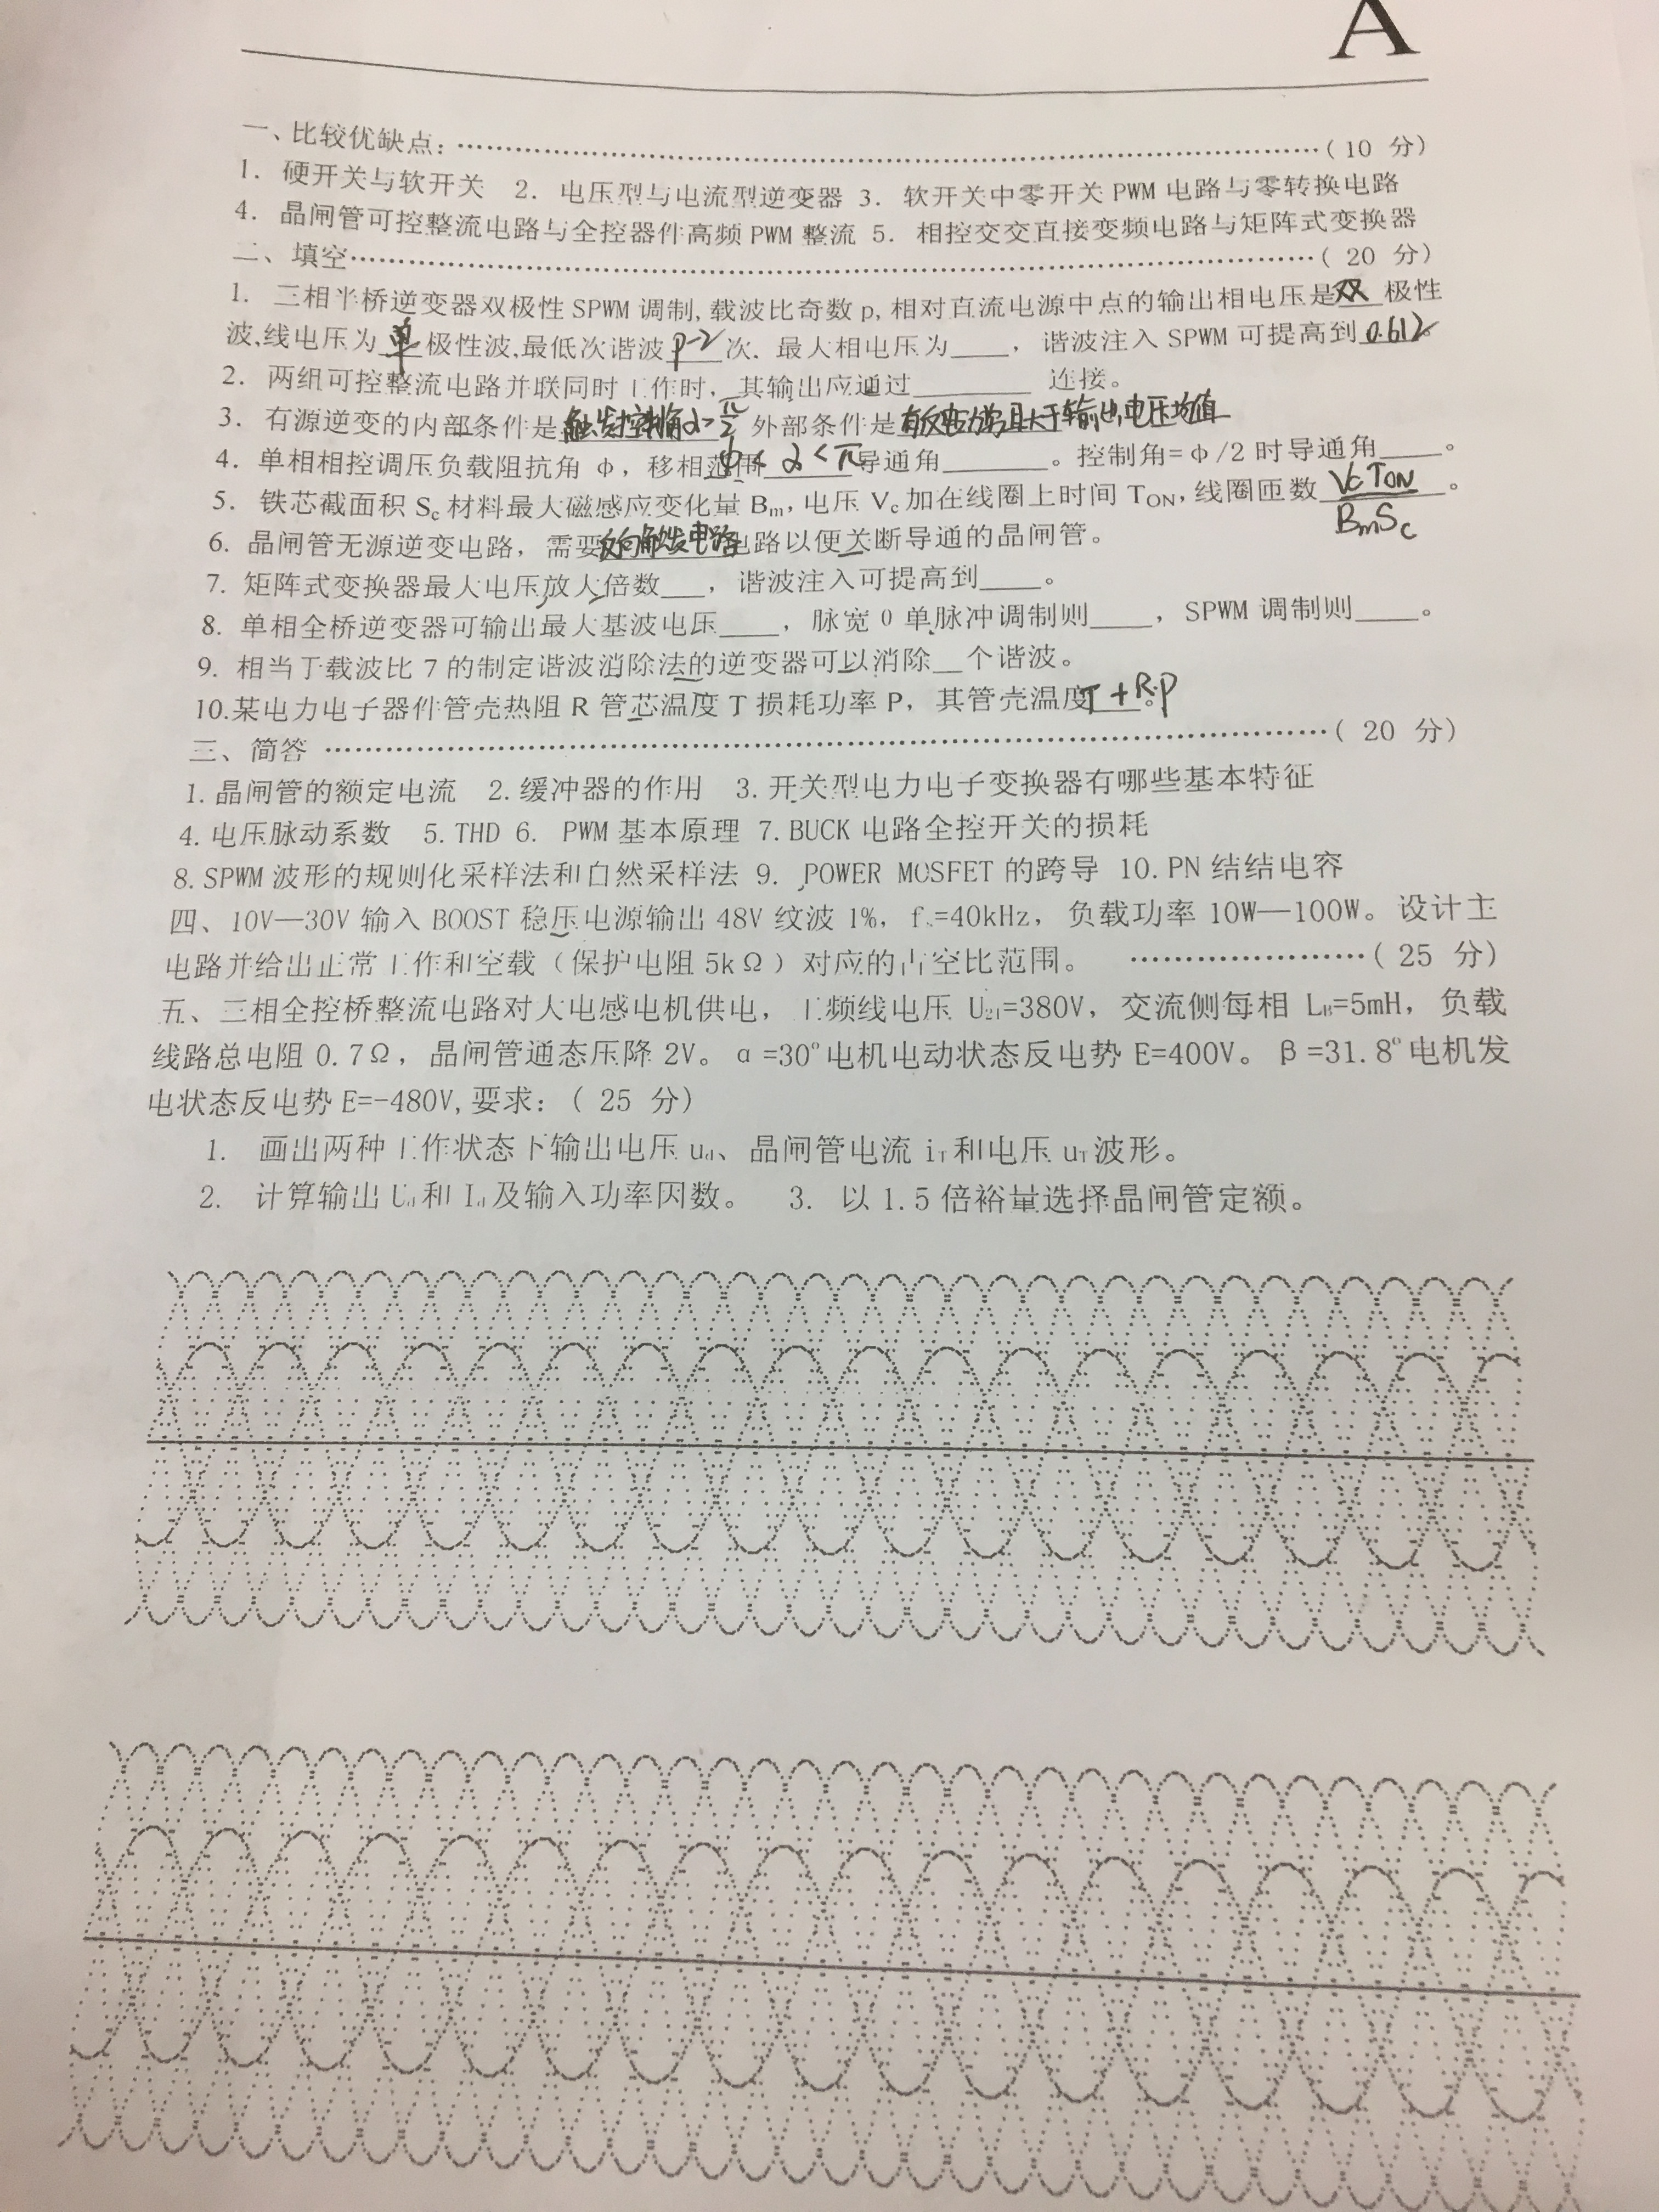 A
一、比较优缺点：………………………………………………………………(10 分)
1. 硬开关与软开关 2. 电压型与电流型逆变器 3. 软开关中零开关 PWM 电路与零转换电路
4. 晶闸管可控整流电路与全控器件高频 PWM 整流 5. 相控交交直接变频电路与矩阵式变换器
二、填空………………………………………………………………………(20 分)
1. 三相半桥逆变器双极性 SPWM 调制, 载波比奇数 p, 相对直流电源中点的输出相电压是双极性
波,线电压为 单 极性波,最低次谐波 p-2 次. 最大相电压为____, 谐波注入 SPWM 可提高到 0.612。
2. 两组可控整流电路并联同时工作时, 其输出应通过________ 连接。
3. 有源逆变的内部条件是触发控制角α>π/2 外部条件是有反电动势且大于输出电压均值
4. 单相相控调压负载阻抗角 φ, 移相范围 φ<α<π 导通角_______。控制角=φ/2 时导通角____。
5. 铁芯截面积 Sc 材料最大磁感应变化量 Bm, 电压 Vc 加在线圈上时间 TON, 线圈匝数 VcTON/BmSc 。
6. 晶闸管无源逆变电路, 需要反向触发电路电路以便关断导通的晶闸管。
7. 矩阵式变换器最大电压放大倍数___, 谐波注入可提高到____。
8. 单相全桥逆变器可输出最大基波电压____, 脉宽 θ 单脉冲调制则____, SPWM 调制则____。
9. 相当于载波比 7 的制定谐波消除法的逆变器可以消除__个谐波。
10.某电力电子器件管壳热阻 R 管芯温度 T 损耗功率 P, 其管壳温度T+R·P。
三、简答 ………………………………………………………………………(20 分)
1.晶闸管的额定电流 2.缓冲器的作用 3.开关型电力电子变换器有哪些基本特征
4.电压脉动系数 5.THD 6. PWM 基本原理 7.BUCK 电路全控开关的损耗
8.SPWM 波形的规则化采样法和自然采样法 9. POWER MOSFET 的跨导 10.PN 结结电容
四、10V—30V 输入 BOOST 稳压电源输出 48V 纹波 1%, fs=40kHz, 负载功率 10W—100W。设计主
电路并给出正常工作和空载（保护电阻 5kΩ）对应的占空比范围。 …………………(25 分)
五、三相全控桥整流电路对大电感电机供电, 工频线电压 U2l=380V, 交流侧每相 LB=5mH, 负载
线路总电阻 0.7Ω, 晶闸管通态压降 2V。α=30°电机电动状态反电势 E=400V。β=31.8°电机发
电状态反电势 E=-480V,要求：(25 分)
1. 画出两种工作状态下输出电压 ud、晶闸管电流 iT和电压 uT波形。
2. 计算输出 Ud和 Id及输入功率因数。 3. 以 1.5 倍裕量选择晶闸管定额。